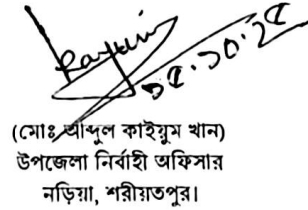 Kayum
১৫.১০.২৫
(মোঃ আব্দুল কাইয়ুম খান)
উপজেলা নির্বাহী অফিসার
নড়িয়া, শরীয়তপুর।